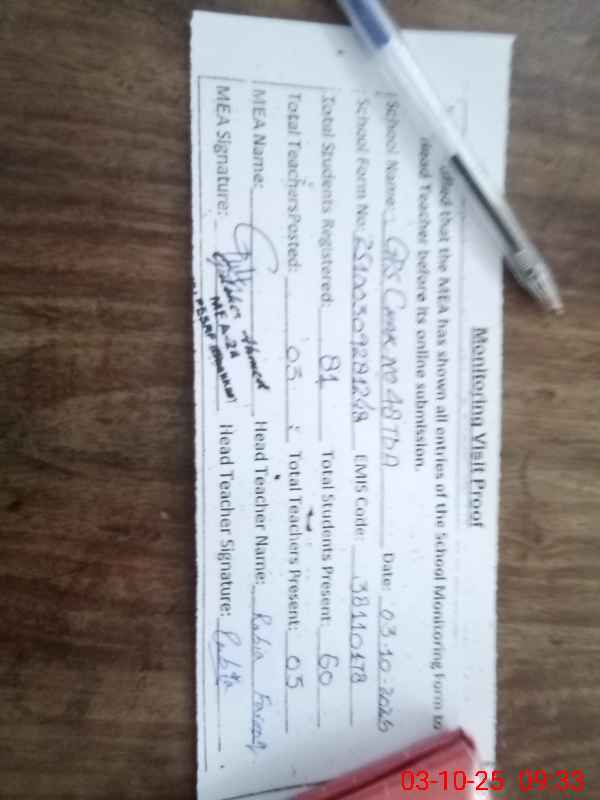 Monitoring Visit Proof
that the MEA has shown all entries of the School Monitoring Form to
Head Teacher before its online submission.
School Name: GPS Chak No 48 TDA Date: 03-10-2025
School Form No: EMIS Code: 38110178
Total Students Registered: 81 Total Students Present: 60
Total Teachers Posted: 03 Total Teachers Present: 03
MEA Name: Head Teacher Name: Rabia
MEA Signature: Ahmed Head Teacher Signature: Rabia
MEA-20
03-10-25 09:33